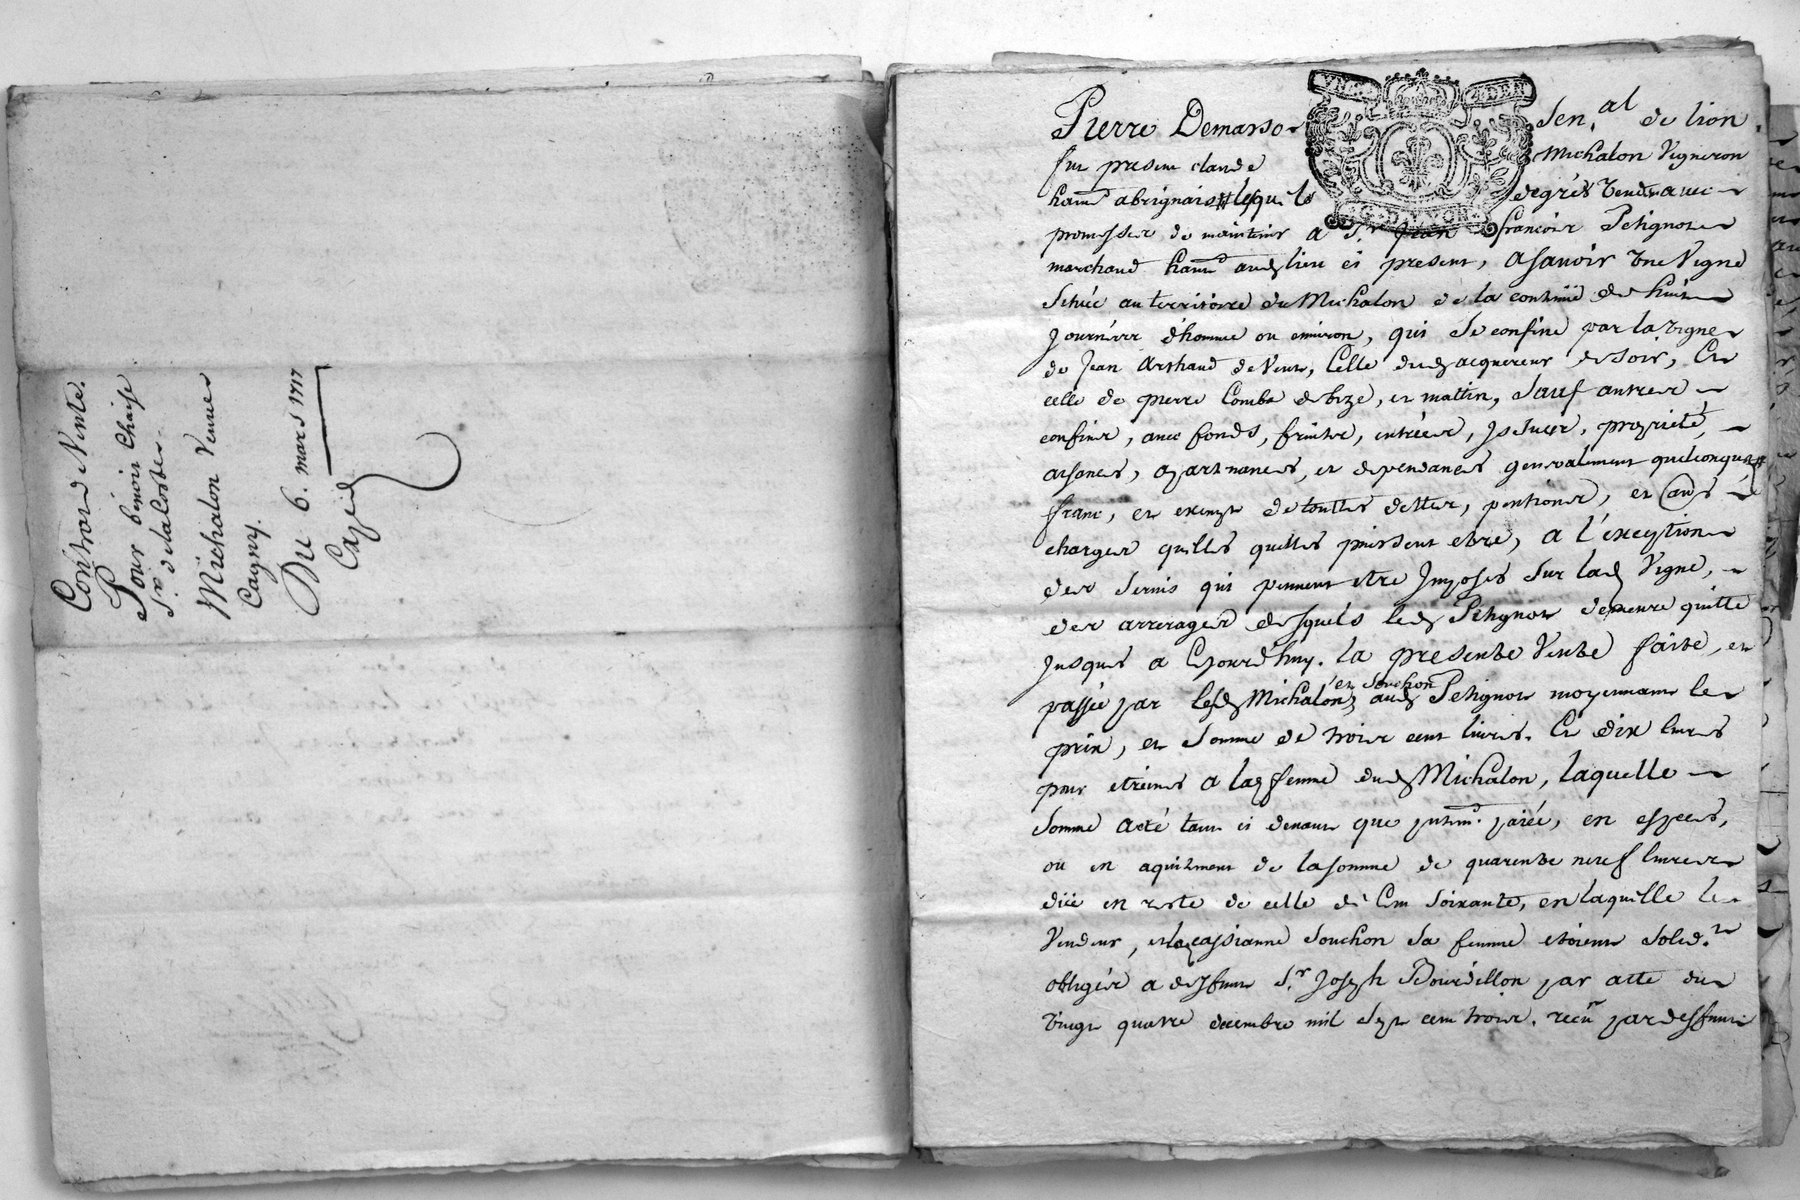 Contrat de Vente.
Pour benoit Chaise
Sr. de lacoste
Michalon Veuve
Cagny.
Du 6. mars 1717
Expié
Pierre Demarso
Sen.al de lion
fut present claude
Michalon Vigneron
hant abrignais # lequel
degrés vend avec
promesse de maintenir a Sr. Jean
francois Petignot
marchand hant audlieu ci present, Asavoir une Vigne
Scituée au territoire du Michalon de la contenüe de huit
journées d'homme ou environ, qui se confine par la vigne
de Jean Arthaud de Vent, Celle dud acquereur de soir, Et
celle de pierre Combe de bize, et mattin, Sauf autres
confins, avec fonds, fruits, entrées, Issues, proprieté,
aisances, apartenances, et dependances generalement quelconques #
franc, et exempt de touttes dettes, pentions, et
charges quelles quelles puissent etre, a l'exception
des servis qui peuvent etre Imposés sur lad Vigne,
des arrerages desquels led Petignot demeure quitte
jusques a cejourdhuy. la presente Vente faite, et
et Souchon
passée par led Michalon, aud Petignot moyennant le
prix, et somme de trois cent livres. Et dix livres
pour etreines a lad femme dud Michalon, laquelle
somme a eté tant ci devant que puntmt. paiée, en especes,
ou en aquitement de la somme de quarente neuf livres
düe en reste de celle de Cent soixante, en laquelle le
Vendeur, et Souchon sa femme etoient solid.re
obligés a deffunt Sr. Joseph Bourdillon par acte du
vingt quatre decembre mil sept cent trois. recu par deffunt